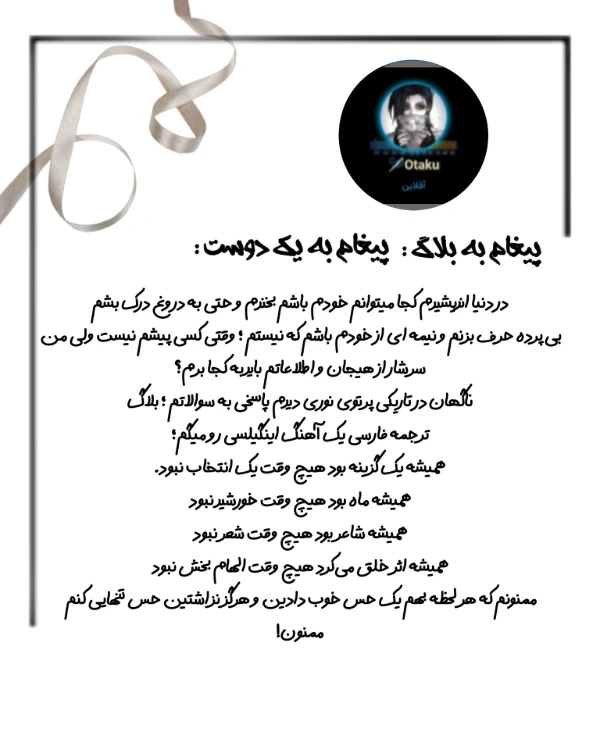 Otaku
آفلاین
پیغام به بلاگ : پیغام به یک دوست :
در دنیا اندیشیدم کجا میتوانم خودم باشم بخندم و حتی به دروغ درک بشم
بی پرده حرف بزنم و نیمه ای از خودم باشم که نیستم ؛ وقتی کسی پیشم نیست ولی من
سرشار از هیجان و اطلاعاتم باید به کجا برم؟
ناگهان در تاریکی پرتوی نوری دیدم پاسخی به سوالاتم ؛ بلاگ
ترجمه فارسی یک آهنگ اینگیلسی رو میگم؛
همیشه یک گزینه بود هیچ وقت یک انتخاب نبود.
همیشه ماه بود هیچ وقت خورشید نبود
همیشه شاعر بود هیچ وقت شعر نبود
همیشه اثر خلق می‌کرد هیچ وقت الهام بخش نبود
ممنونم که هر لحظه بهم یک حس خوب دادین و هرگز نزاشتین حس تنهایی کنم
ممنون!